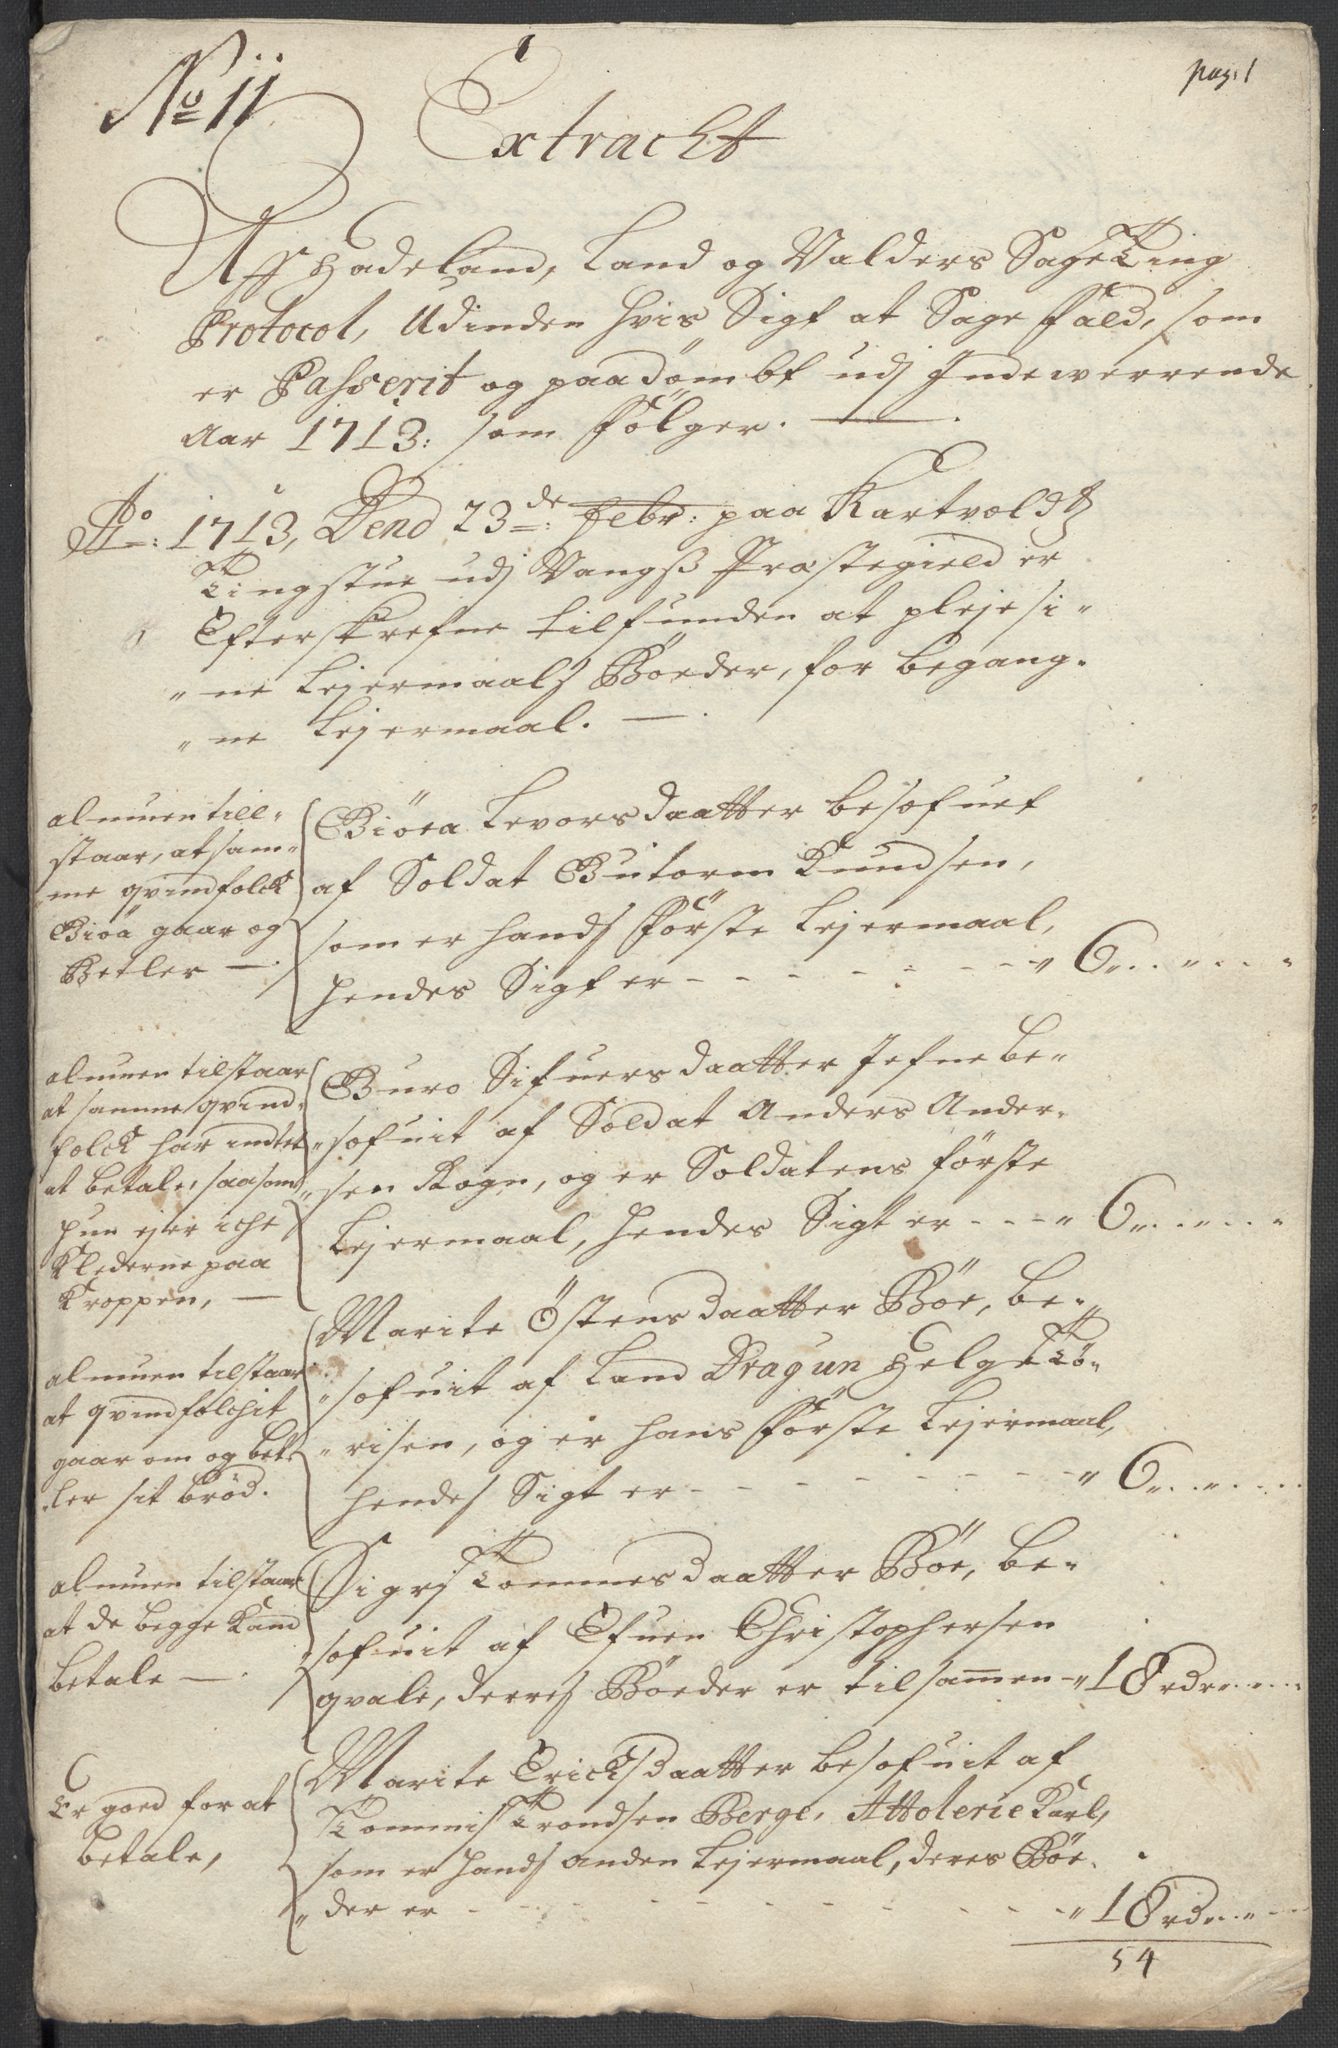 No 11
pag: 1
Extracht
Aff Hadeland, Land og Valders SageTing
Protocol, Udinden hvis Sigt at Sage fald, som
er Passerit og paadømbt udj Indewerrende
Aar 1713: som følger.
Ao: 1713, Dend 23de: febr: paa Kartvoldtz
Tingstue udj Vangß Præstegield er
Efterskrefne tilfunden at pleje si-
ne Lejermaalz Bøder, for begang-
ne Lejermaal.
almuen till-
staar, at sam-
me qvindfolck
Biöa gaar og
Betler
Biöea Levorsdaatter besofuet
af Soldat Butorm Knudsen,
som er hands første Lejermaal,
hendes Sigt er - - - 6
almuen tilstaar
at samme qvind-
folck har indtet
at betale, saasom
hun ejer iche
Klederne paa
Kroppen,
Guro Sifuersdaatter Jefne be-
sofuit af Soldat Anders Ander-
sen Rogn, og er Soldatens første
Lejermaal, hendes Sigt er - - - 6
almuen tilstaar
at qvindfolchit
gaar om og bet-
ler sit brød.
Marite Östensdaatter Böe, be-
sofuit af Land Dragun Helge To-
risen, og er hans Første Lejermaal,
hendes Sigt er - - - 6
almuen tilstaar
at de begge Kand
betale
Sigrj Tommesdaatter Böe, be-
sofuit af Efuen Christophersen
qvale, derris Bøeder er tilsammen 18 rdr
Er goed for at
betale,
Marite Ericksdaatter besofuit af
Tommis Trondsen Berge, Attolerie Karl,
som er hands anden Lejermaal, deres Böe-
der er - - - 18 rdr
54